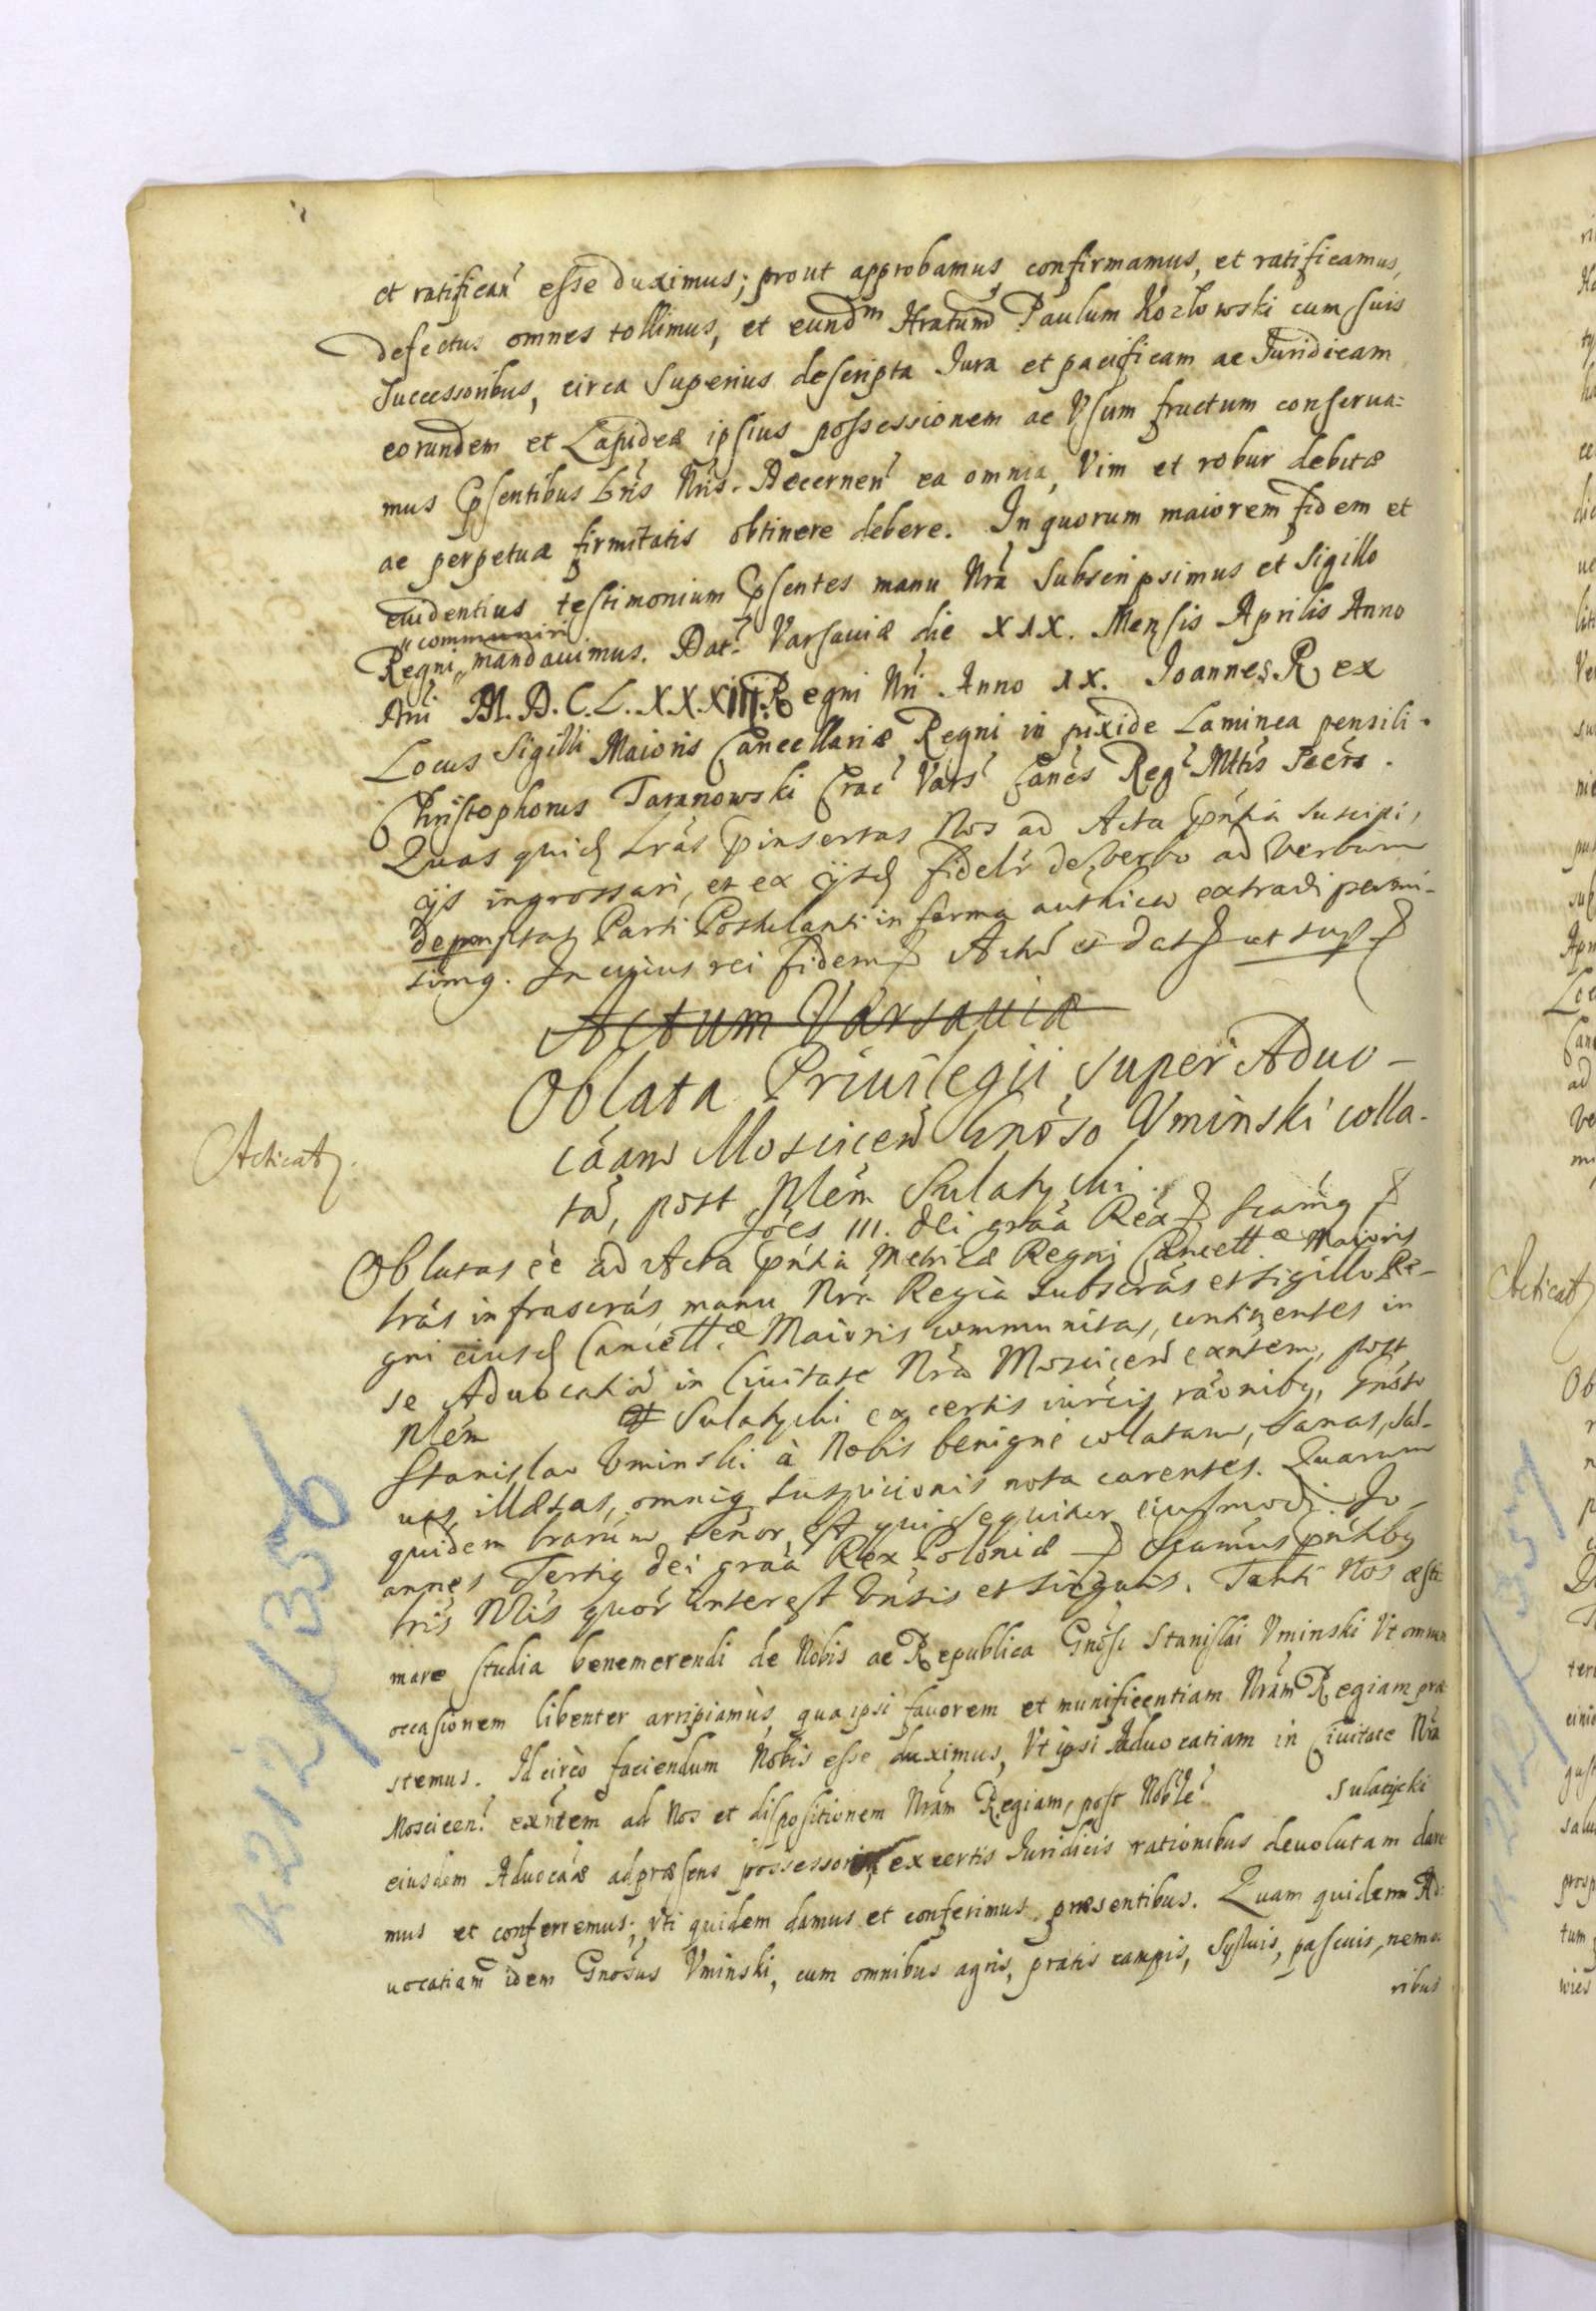 et ratifican̄ esse duximus; prout approbamus confirmamus, et ratificamus,
defectus omnes tollimus, et eundm Hratum Paulum Kozlowski cum suis
Successoribus, circa Superius descripta Jura et pacificam ac Juridicam
eorundem et Lapideæ ipsius possessionem ac Vsum fructum conserua=
mus Pnsentibus Lr̄is Nr̄is. Decernen̄ ea omnia, Vim et robur debitæ
ac perpetuæ firmitatis obtinere debere. In quorum maiorem fidem et
euidentius testimonium Pnsentes manu Nr̄a Subscripsimus et Sigillo
communiri
Regni mandauimus. Dat. Varsauiæ die XIX. Mensis Aprilis Anno
Dn̄i M.D.C.L.XX.XIII. Regni Nr̄i Anno IX. Joannes Rex
Locus Sigilli Maioris Cancellariæ Regni in pixide Laminea pensili.
Christophorus Taranowski Crac̄ Vars̄ Can̄cs Reḡ Mt̄tis Secr̄s.
Quas quid Lr̄as Pinsertas Nos ad Acta Pn̄tia suscipi,
ijs ingrossari, et ex ijsd fidelr̄ de verbo ad Verbum
depomptas Parti Postulanti in forma authica extradi permi-
simq. In cuius rei fidem Actū et dat ut sup
Actum Varsauiæ
Oblata Priuilegii super Aduo-
cāam Moscicen̄ Gnōso Vminski colla-
tā, post Nlem̄ Sulatycki
Acticat.
Jōes III. dei grāa Rex Scam̄q
Oblatas eē ad Acta Pn̄tia Metricæ Regni Cancell.æ Maioris
lrās infrascrās, manu Nrā Regia subscrās et sigillo Re-
gni eiusd Cancell.æ Maioris communitas, continentes in
se Aduocatiā in Ciuitate Nrā Moscicen̄ exn̄tem, post
Nlem̄ Sulatycki ex certis iurcis rāonibq, Gnōso
Stanislao Vminski à Nobis benigne collatam, sanas, sal-
uas, illæsas, omniq suspicionis nota carentes. Quarum
quidem lrarum tenor, est qui sequitur eiusmodi. Jo-
annes Tertiq dei grāa Rex Poloniæ Scamus pn̄tibq
lrīs Nr̄is quor̄ interest Vn̄sis et singulis. Tanti Nos æsti
mare studia benemerendi de Nobis ac Republica Gnōsi Stanislai Vminski Vt omnem
occasionem libenter arripiamùs, qua ipsi fauorem et munificentiam Nr̄am Regiam præ
stemus. Idcircò faciendum Nobis esse duximus, Vt ipsi Aduocatiam in Ciuitate Nr̄a
Moscicen̄ exn̄tem ad Nos et dispositionem Nr̄am Regiam, post Noblē Sulatycki
eiusdem Aduocāæ ad præsens possessorem, ex certis Iuridicis rationibus deuolutam dare
mus et conferremus; vti quidem damus et conferimus præsentibus. Quam quidem Ad
uocatiam idem Gnōsus Vminski, cum omnibus agris, pratis campis, Syluis, pascuis, nemo
ribus